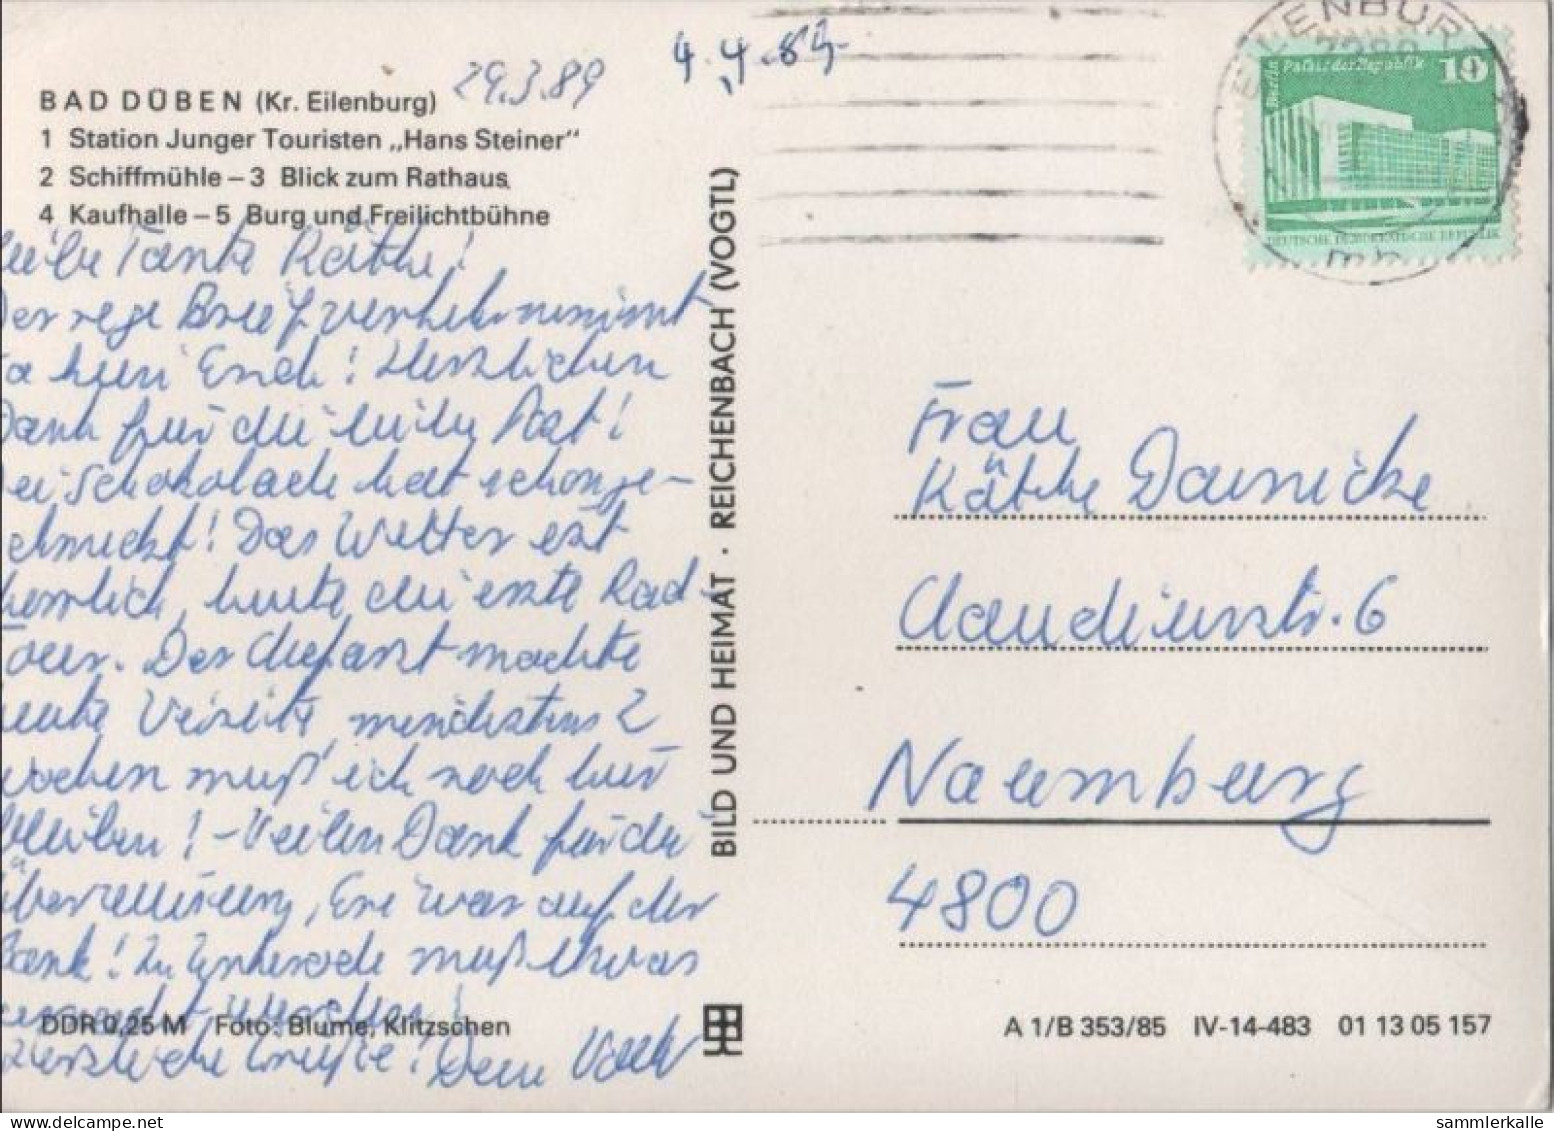 BAD DÜBEN (Kr. Eilenburg)
1 Station Junger Touristen „Hans Steiner“
2 Schiffmühle – 3 Blick zum Rathaus
4 Kaufhalle – 5 Burg und Freilichtbühne
29.3.89
4.4.89
Tante Käthe!
rege Briefverkehr nimmt
kein Ende! Herzlichen
Dank für die liebe Post!
Schokolade hat schon ge-
schmeckt! Das Wetter ist
herrlich, heute die erste Rad-
Tour. Der Chefarzt machte
heute Visite, mindestens 2
Wochen muß ich noch hier
bleiben! – Vielen Dank für die
Überweisung, war auf der
Bank! In muß etwas
Herzliche Grüße! Dein
DDR 0,25 M Foto: Blume, Klitzschen
BILD UND HEIMAT · REICHENBACH (VOGTL)
EILENBURG
Berlin Palast der Republik 10
DEUTSCHE DEMOKRATISCHE REPUBLIK
Frau
Käthe
Claudiusstr. 6
Naumburg
4800
A 1/B 353/85 IV-14-483 01 13 05 157
sammlerkalle